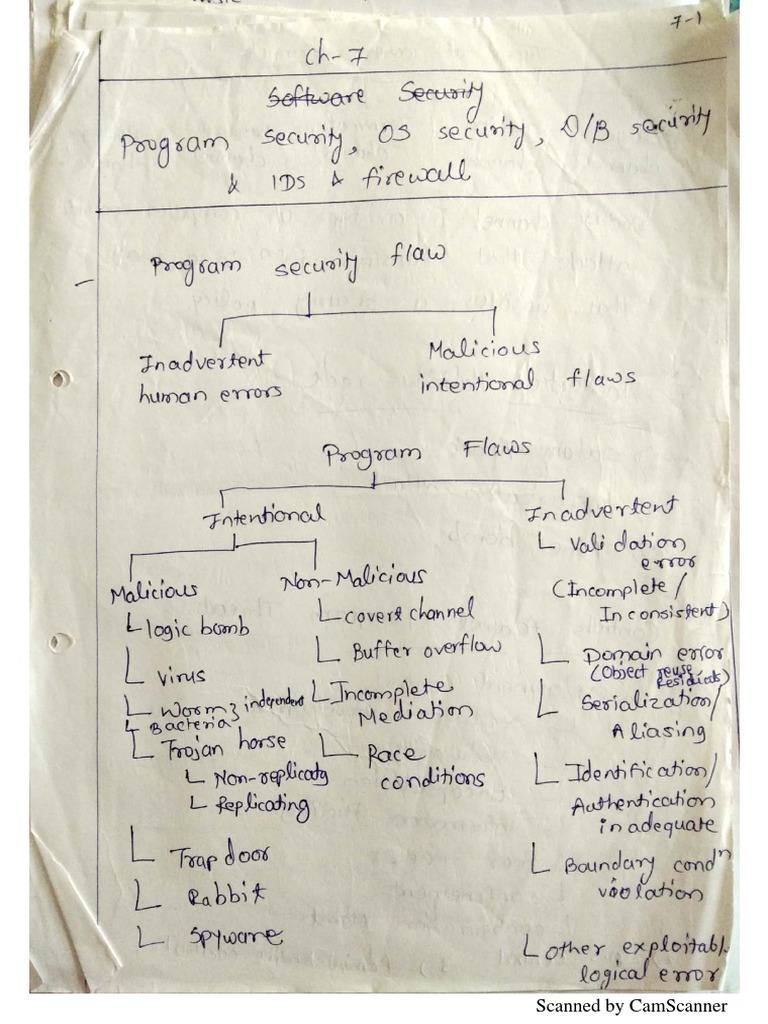 7-1
Ch-7
Software Security
Program security, OS security, D/B security
& IDS & firewall
Program security flaw
Inadvertent
human errors
Malicious
intentional flaws
Program Flaws
Intentional
Malicious
logic bomb
virus
Worm } independent
Bacteria
Trojan horse
Non-replicatg
Replicating
Trap door
Rabbit
Spyware
Non-Malicious
Covert channel
Buffer overflow
Incomplete
Mediation
Race
conditions
Inadvertent
Validation
error
(Incomplete/
Inconsistent)
Domain error
(Object reuse
Residuals)
Serialization/
Aliasing
Identification/
Authentication
inadequate
Boundary condn
violation
other exploitabl
logical error
Scanned by CamScanner